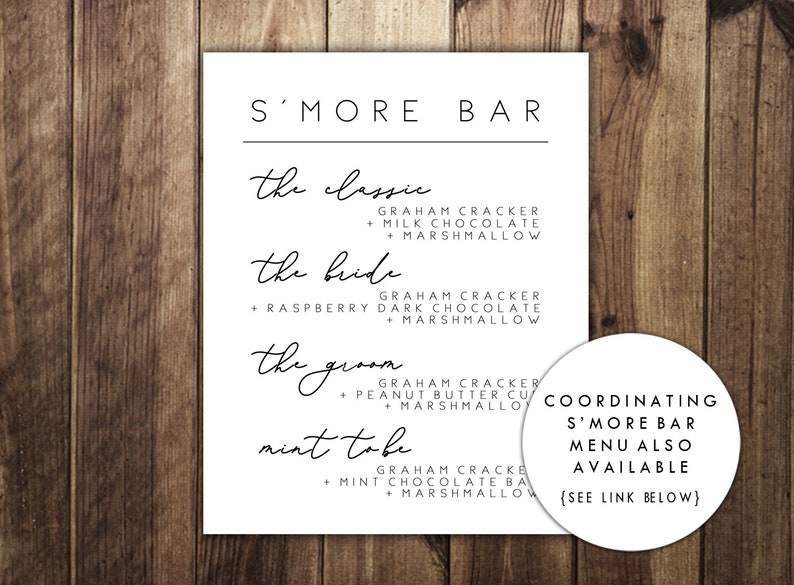 S'MORE BAR
the classic
GRAHAM CRACKER
+ MILK CHOCOLATE
+ MARSHMALLOW
the bride
GRAHAM CRACKER
+ RASPBERRY DARK CHOCOLATE
+ MARSHMALLOW
the groom
GRAHAM CRACKER
+ PEANUT BUTTER CU
+ MARSHMALLOW
mint to be
GRAHAM CRACKER
+ MINT CHOCOLATE BA
+ MARSHMALLOW
COORDINATING
S'MORE BAR
MENU ALSO
AVAILABLE
{SEE LINK BELOW}